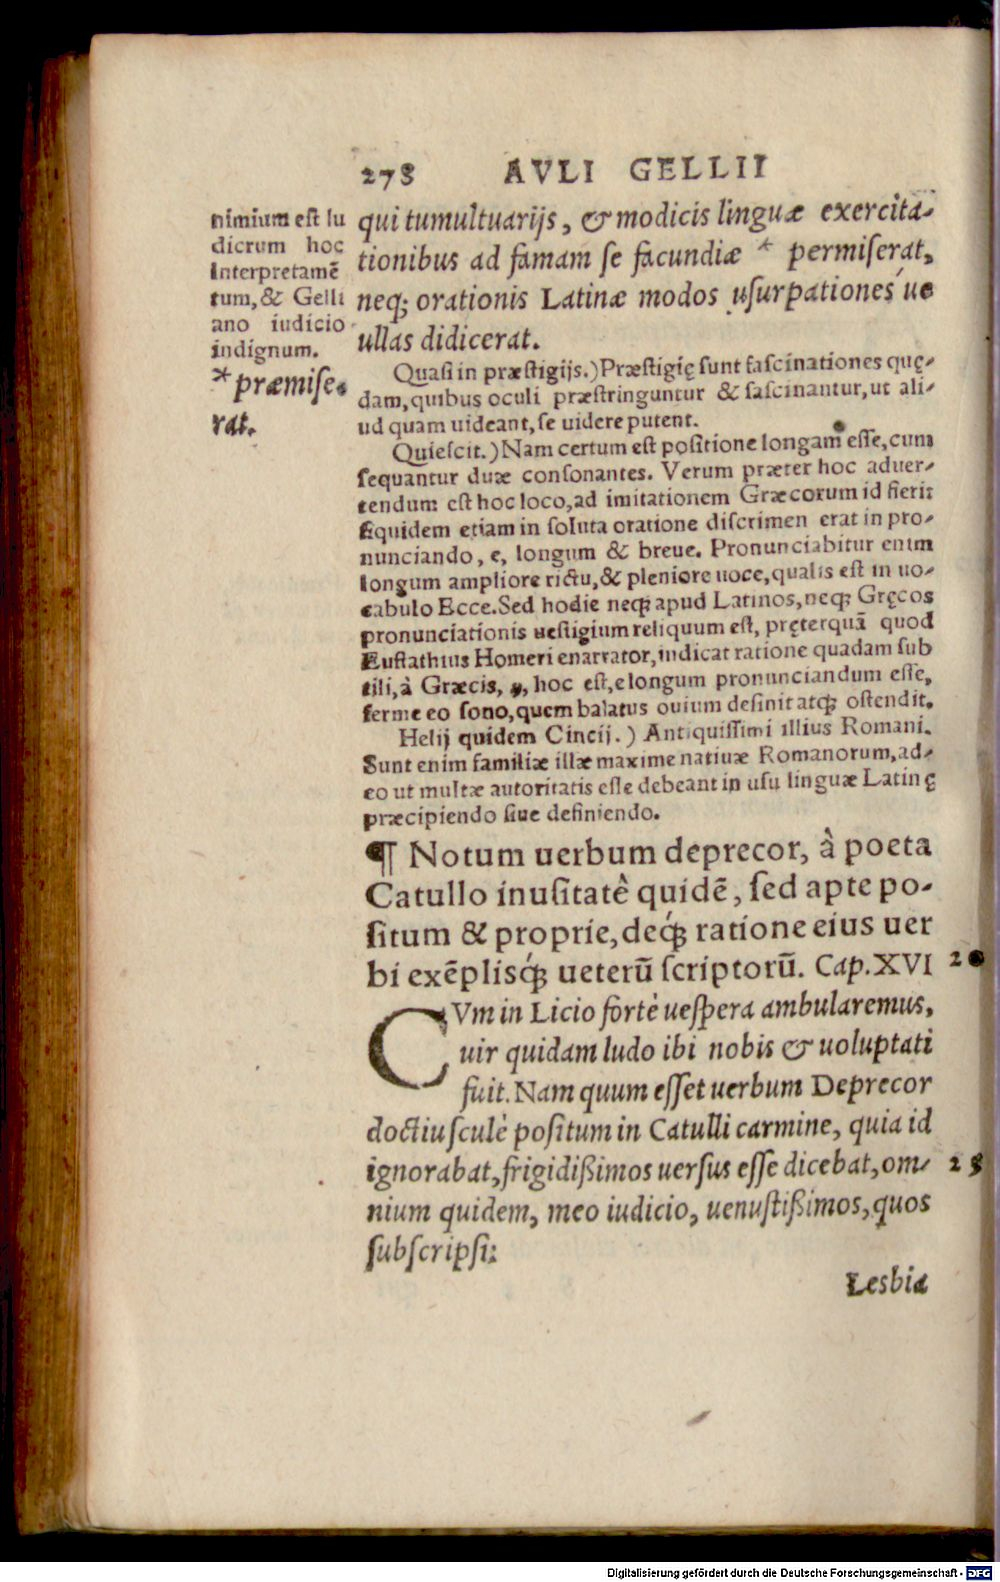 278 AVLI GELLII
nimium est lu
dicrum hoc
interpretamē
tum, & Gelli
ano iudicio
indignum.
*præmise-
rat.
qui tumultuarijs, & modicis linguæ exercita-
tionibus ad famam se facundiæ * permiserat,
neq; orationis Latinæ modos usurpationes úe
ullas didicerat.
Quasi in præstigijs.) Præstigię sunt fascinationes quę-
dam, quibus oculi præstringuntur & fascinantur, ut ali-
ud quam uideant, se uidere putent.
Quiescit.) Nam certum est positione longam esse, cum
sequantur duæ consonantes. Verum præter hoc aduer-
tendum est hoc loco, ad imitationem Græcorum id fieri:
Equidem etiam in soluta oratione discrimen erat in pro-
nunciando, e, longum & breue. Pronunciabitur enim
longum ampliore rictu, & pleniore uoce, qualis est in uo-
cabulo Ecce. Sed hodie neq; apud Latinos, neq; Gręcos
pronunciationis uestigium reliquum est, pręterquā quod
Eustathius Homeri enarrator, indicat ratione quadam sub
tili, à Græcis, η, hoc est, e longum pronunciandum esse,
ferme eo sono, quem balatus ouium definit atq; ostendit.
Helij quidem Cincij.) Antiquissimi illius Romani.
Sunt enim familiæ illæ maxime natiuæ Romanorum, ad-
eo ut multæ autoritatis esse debeant in usu linguæ Latinę
præcipiendo siue definiendo.
¶ Notum uerbum deprecor, à poeta
Catullo inusitatè quidē, sed apte po-
situm & proprie, deq́; ratione eius uer
bi exēplisq́; ueterū scriptorū. Cap. XVI
CVm in Licio fortè uespera ambularemus,
uir quidam ludo ibi nobis & uoluptati
fuit. Nam quum esset uerbum Deprecor
doctiusculè positum in Catulli carmine, quia id
ignorabat, frigidißimos uersus esse dicebat, om-
nium quidem, meo iudicio, uenustißimos, quos
subscripsi:
Lesbia
Digitalisierung gefördert durch die Deutsche Forschungsgemeinschaft - DFG